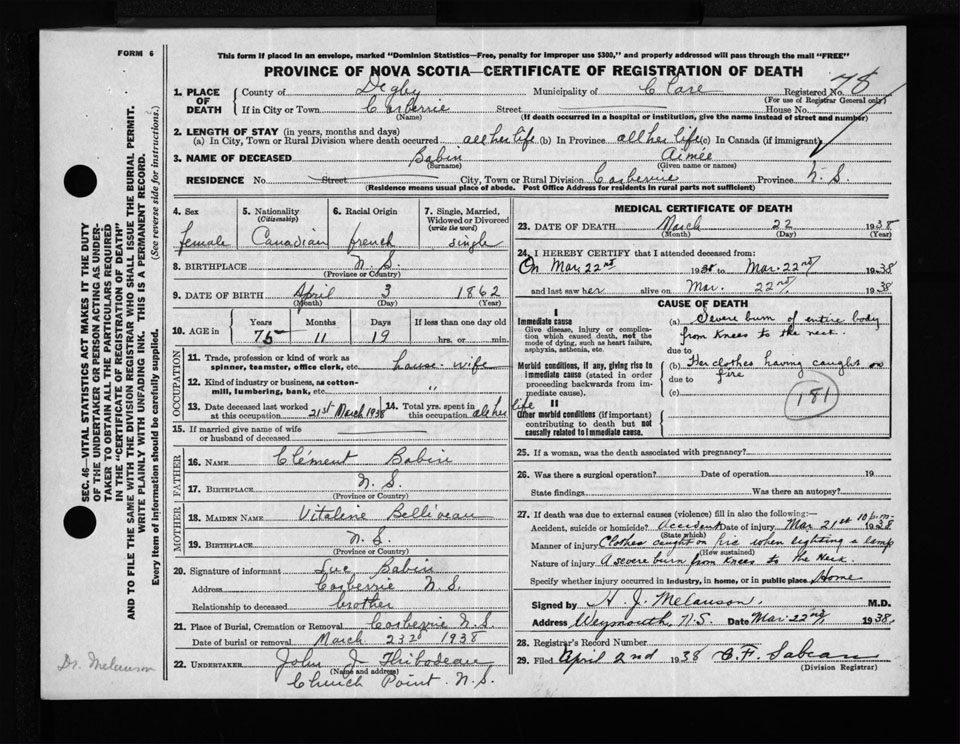 FORM 6
This form if placed in an envelope, marked "Dominion Statistics—Free, penalty for improper use $300," and properly addressed will pass through the mail "FREE"
PROVINCE OF NOVA SCOTIA—CERTIFICATE OF REGISTRATION OF DEATH
78
1. PLACE OF DEATH County of Digby Municipality of Clare Registered No.
(For use of Registrar General only)
If in City or Town Corberrie Street House No.
(Name) (If death occurred in a hospital or institution, give the name instead of street and number)
2. LENGTH OF STAY (in years, months and days)
(a) In City, Town or Rural Division where death occurred all her life (b) In Province all her life (c) In Canada (if immigrant)
3. NAME OF DECEASED Babin Aimée
(Surname) (Given name or names)
RESIDENCE No Street City, Town or Rural Division Corberrie Province N.S.
(Residence means usual place of abode. Post Office Address for residents in rural parts not sufficient)
4. Sex female
5. Nationality (Citizenship) Canadian
6. Racial Origin french
7. Single, Married, Widowed or Divorced (write the word) single
8. BIRTHPLACE N.S.
(Province or Country)
9. DATE OF BIRTH April 3 1862
(Month) (Day) (Year)
10. AGE in Years Months Days If less than one day old
75 11 19 hrs. or min.
OCCUPATION
11. Trade, profession or kind of work as spinner, teamster, office clerk, etc. house-wife
12. Kind of industry or business, as cotton-mill, lumbering, bank, etc. "
13. Date deceased last worked at this occupation 21st March 1938
14. Total yrs. spent in this occupation all her life
15. If married give name of wife or husband of deceased
FATHER
16. NAME Clément Babin
17. BIRTHPLACE N.S.
(Province or Country)
MOTHER
18. MAIDEN NAME Vitaline Belliveau
19. BIRTHPLACE N.S.
(Province or Country)
20. Signature of informant Luc Babin
Address Corberrie N.S.
Relationship to deceased brother
21. Place of Burial, Cremation or Removal Corberrie N.S.
Date of burial or removal March 23 1938
22. UNDERTAKER John J Thibodeau
(Name and address)
Church Point N.S.
MEDICAL CERTIFICATE OF DEATH
23. DATE OF DEATH March 22 1938
(Month) (Day) (Year)
24. I HEREBY CERTIFY that I attended deceased from:
On Mar. 22nd 1938 to Mar. 22nd 1938
and last saw her alive on Mar. 22nd, 1938
CAUSE OF DEATH
I
Immediate cause
Give disease, injury or complication which caused death, not the mode of dying, such as heart failure, asphyxia, asthenia, etc.
(a) Severe burn of entire body
from Knees to the neck.
due to
Morbid conditions, if any, giving rise to immediate cause (stated in order proceeding backwards from immediate cause).
(b) Her clothes having caught on
due to fire
(c)
181
II
Other morbid conditions (if important) contributing to death but not causally related to immediate cause.
25. If a woman, was the death associated with pregnancy?
26. Was there a surgical operation? Date of operation 19
State findings Was there an autopsy?
27. If death was due to external causes (violence) fill in also the following:— 10 p.m.
Accident, suicide or homicide? Accident Date of injury Mar 21st 1938
(State which)
Manner of injury Clothes caught on fire when lighting a lamp
(How sustained)
Nature of injury A severe burn from Knees to the Neck
Specify whether injury occurred in industry, in home, or in public place Home
Signed by H. J. Melanson. M.D.
Address Weymouth N.S. Date Mar. 22nd, 1938.
28. Registrar's Record Number
29. Filed April 2nd 1938 C. F. Sabean
(Division Registrar)
SEC. 46—VITAL STATISTICS ACT MAKES IT THE DUTY
OF THE UNDERTAKER OR PERSON ACTING AS UNDER-
TAKER TO OBTAIN ALL THE PARTICULARS REQUIRED
IN THE "CERTIFICATE OF REGISTRATION OF DEATH"
AND TO FILE THE SAME WITH THE DIVISION REGISTRAR WHO SHALL ISSUE THE BURIAL PERMIT.
WRITE PLAINLY WITH UNFADING INK. THIS IS A PERMANENT RECORD.
Every item of information should be carefully supplied. (See reverse side for instructions.)
Dr. Melanson